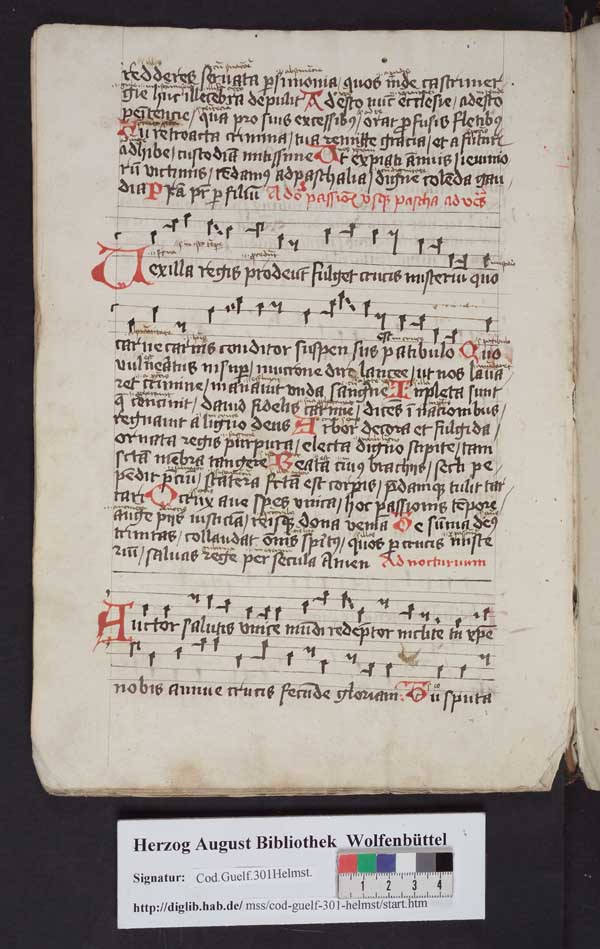 redderet seruata psimonia / quos inde castrimer
gie huc illecebra depulit Adesto nuc ecclesie / adesto
penitencie / qua pro suis excessibus / orat pfusis fletibus
Tu retroacta crimina / tua remitte gracia / et a futuris
adhibe / custodiā mitissime Ut expiati ānuis / ieiunio
rū victimis / tēdamus ad paschalia / digne colenda gau
dia Psta pr p filiū Ad doi passioē vsque pascha ad vesp
Vexilla regis prodeūt fulget crucis misteriū quo
carne carnis conditor suspensus est patibulo Quo
vulneratus insuper / mucrone diro lancee / ut nos lauā
ret crimine / manauit unda sanguine Impleta sunt
que concinit / dauid fidelis carmine / dices ī nationibus /
regnauit a ligno deus Arbor decora et fulgida /
ornata regis purpura / electa digno stipite / tam
sctā mēbra tangere Beata cuius brachiis / secli pe
pēdit pciū / statera fctā est corpis / pdamque tulit tar
tari O crux aue spes unica / hoc passionis tēpore /
auge piis iusticiā / reisque dona venia Te sūma deus
trinitas / collaudat omis spirtus / quos p crucis miste
rium / saluas rege per secula Amen Ad nocturnum
Auctor salutis vnice mūdi redēptor inclite tu xpē
nobis annue crucis fecūde gloriam Tu sputa
Herzog August Bibliothek Wolfenbüttel
Signatur: Cod.Guelf.301Helmst.
http://diglib.hab.de/ mss/cod-guelf-301-helmst/start.htm
1 2 3 4